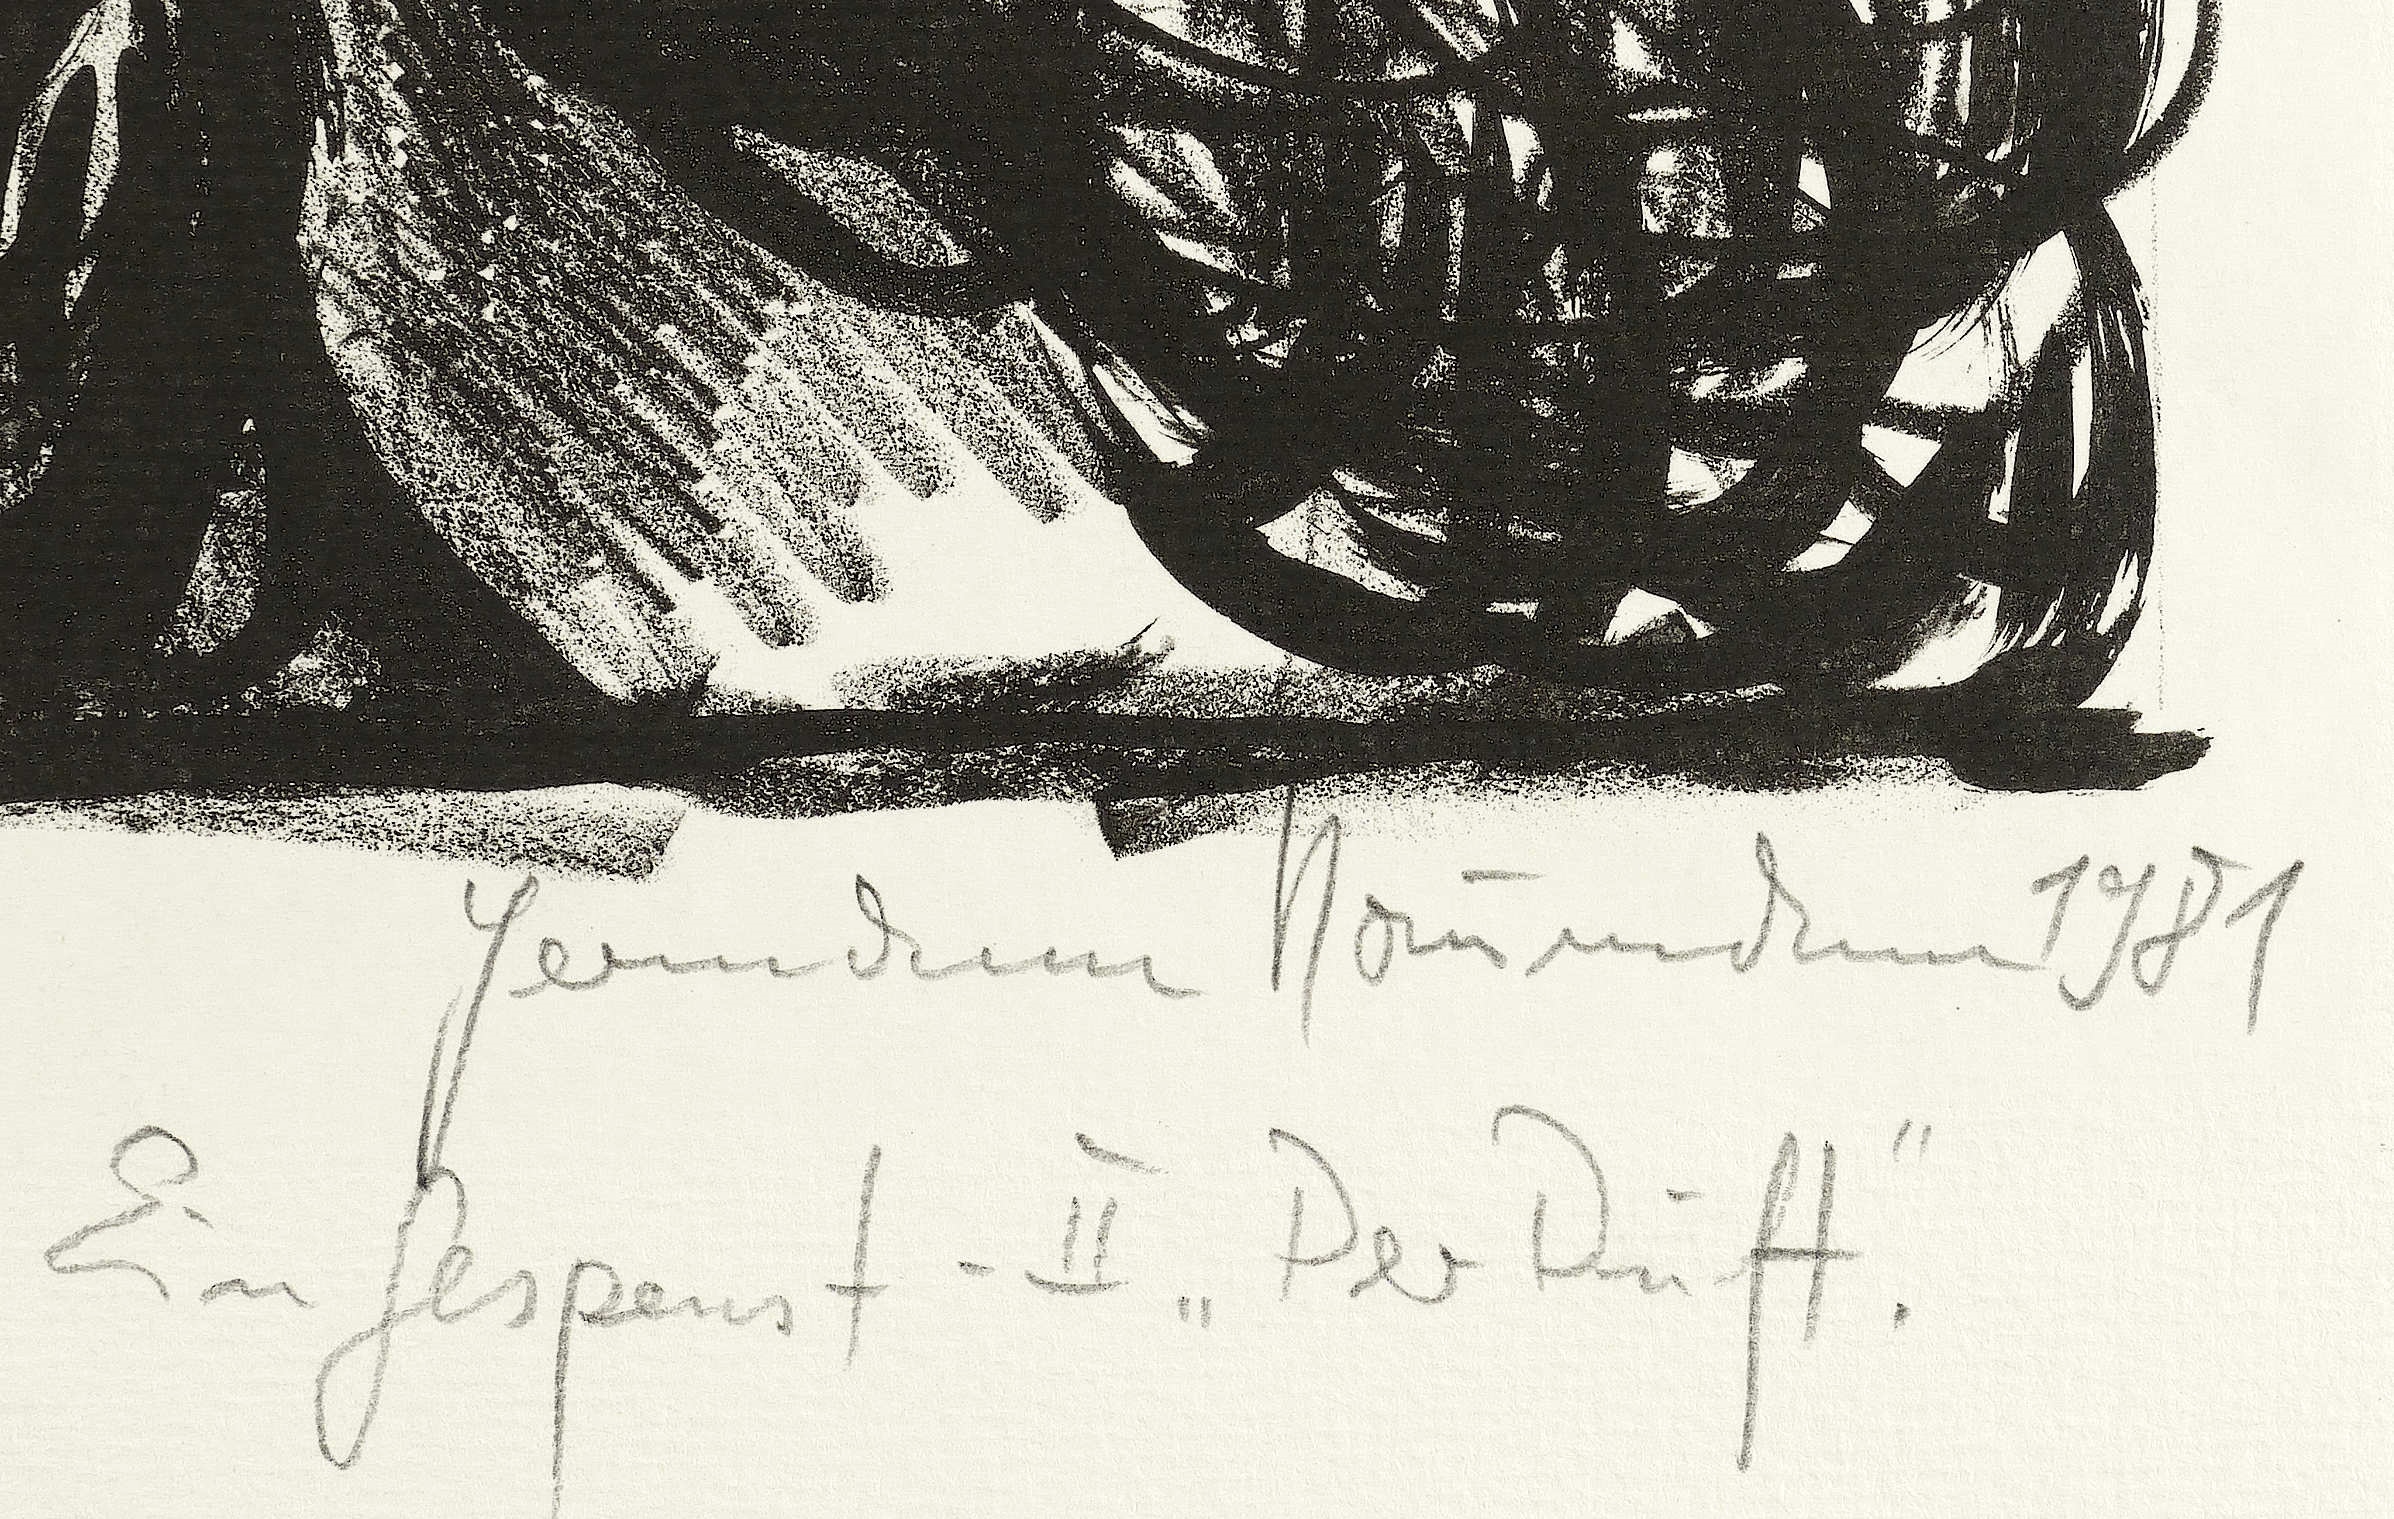 Hermann Naumann 1981
Ein Gespenst - II „Der Duft."